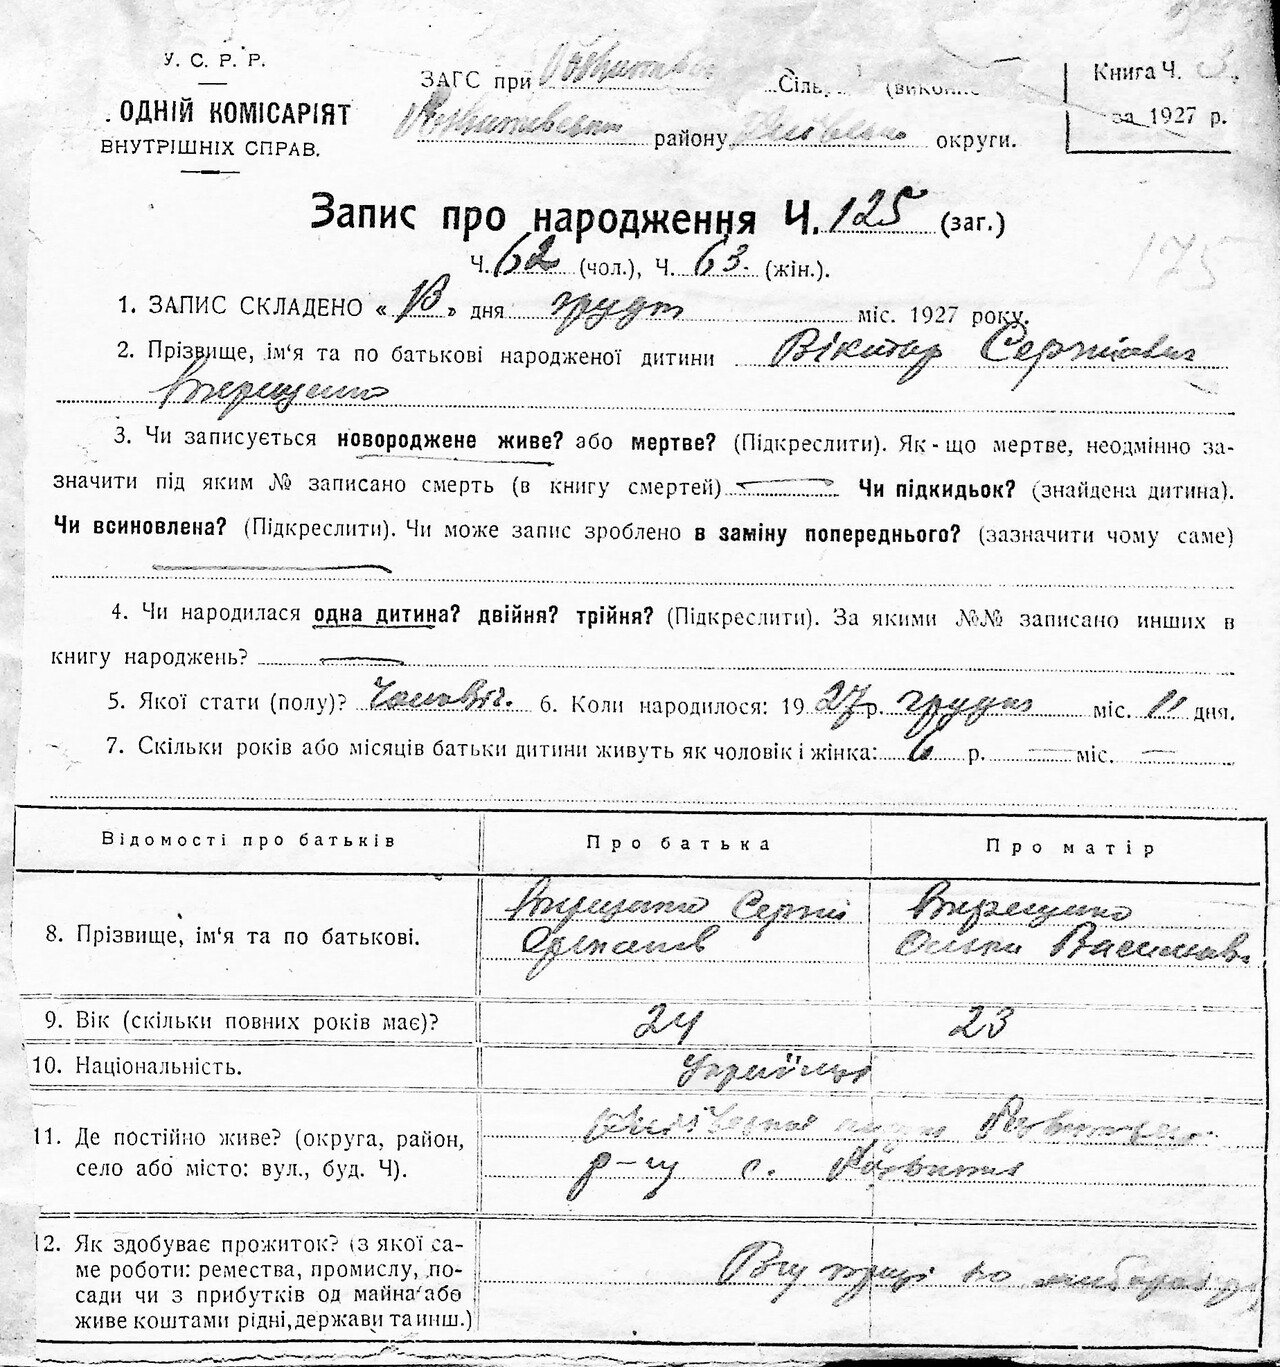 У. С. Р. Р.
ОДНІЙ КОМІСАРІЯТ
ВНУТРІШНІХ СПРАВ.
ЗАГС при Сіль
району округи.
Книга Ч. 3.
за 1927 р.
Запис про народження Ч. 125 (заг.)
Ч. 62 (чол.), Ч. 63. (жін.).
175
1. ЗАПИС СКЛАДЕНО « 13 » дня грудня міс. 1927 року.
2. Прізвище, ім'я та по батькові народженої дитини Віктор Сергієвич
Верещенко
3. Чи записується новороджене живе? або мертве? (Підкреслити). Як-що мертве, неодмінно за-
значити під яким № записано смерть (в книгу смертей) Чи підкидьок? (знайдена дитина).
Чи всиновлена? (Підкреслити). Чи може запис зроблено в заміну попереднього? (зазначити чому саме)
4. Чи народилася одна дитина? двійня? трійня? (Підкреслити). За якими №№ записано инших в
книгу народжень?
5. Якої стати (полу)? Чоловіч. 6. Коли народилося: 1927 р. грудня міс. 11 дня.
7. Скільки років або місяців батьки дитини живуть як чоловік і жінка: 6 р. міс.
Відомості про батьків Про батька Про матір
8. Прізвище, ім'я та по батькові. Верещенко Сергій Верещенко
Ольга Василівн
9. Вік (скільки повних років має)? 24 23
10. Національність. Українці
11. Де постійно живе? (округа, район,
село або місто: вул., буд. Ч). р-ну с.
12. Як здобуває прожиток? (з якої са-
ме роботи: ремества, промислу, по-
сади чи з прибутків од майна або
живе коштами рідні, держави та инш.)